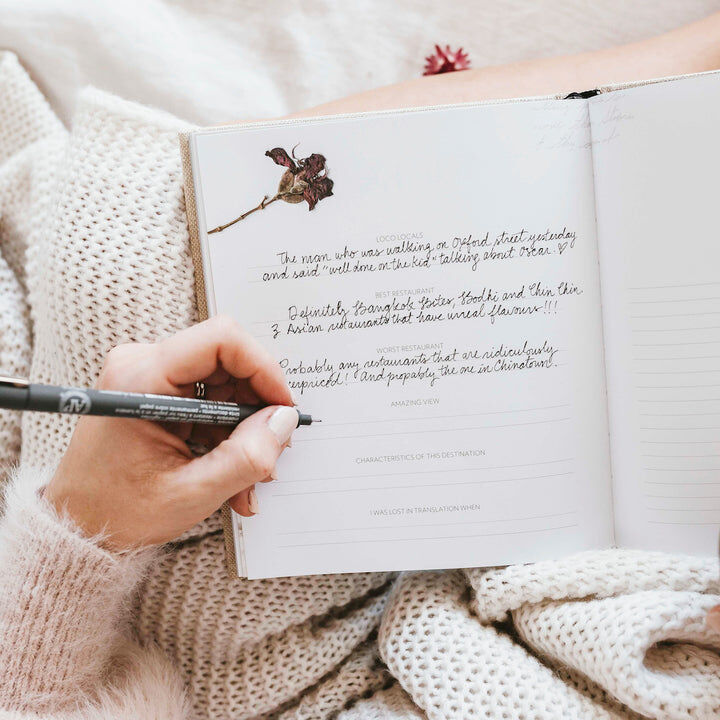 LOCO LOCALS
The man who was walking on Oxford street yesterday
and said "well done on the kid" talking about Oscar. ♡
BEST RESTAURANT
Definitely Bangkok Bites, Bodhi and Chin Chin
3 Asian restaurants that have unreal flavours!!!
WORST RESTAURANT
Probably any restaurants that are ridiculously
erpriced! And propably the one in Chinatown.
AMAZING VIEW
CHARACTERISTICS OF THIS DESTINATION
I WAS LOST IN TRANSLATION WHEN